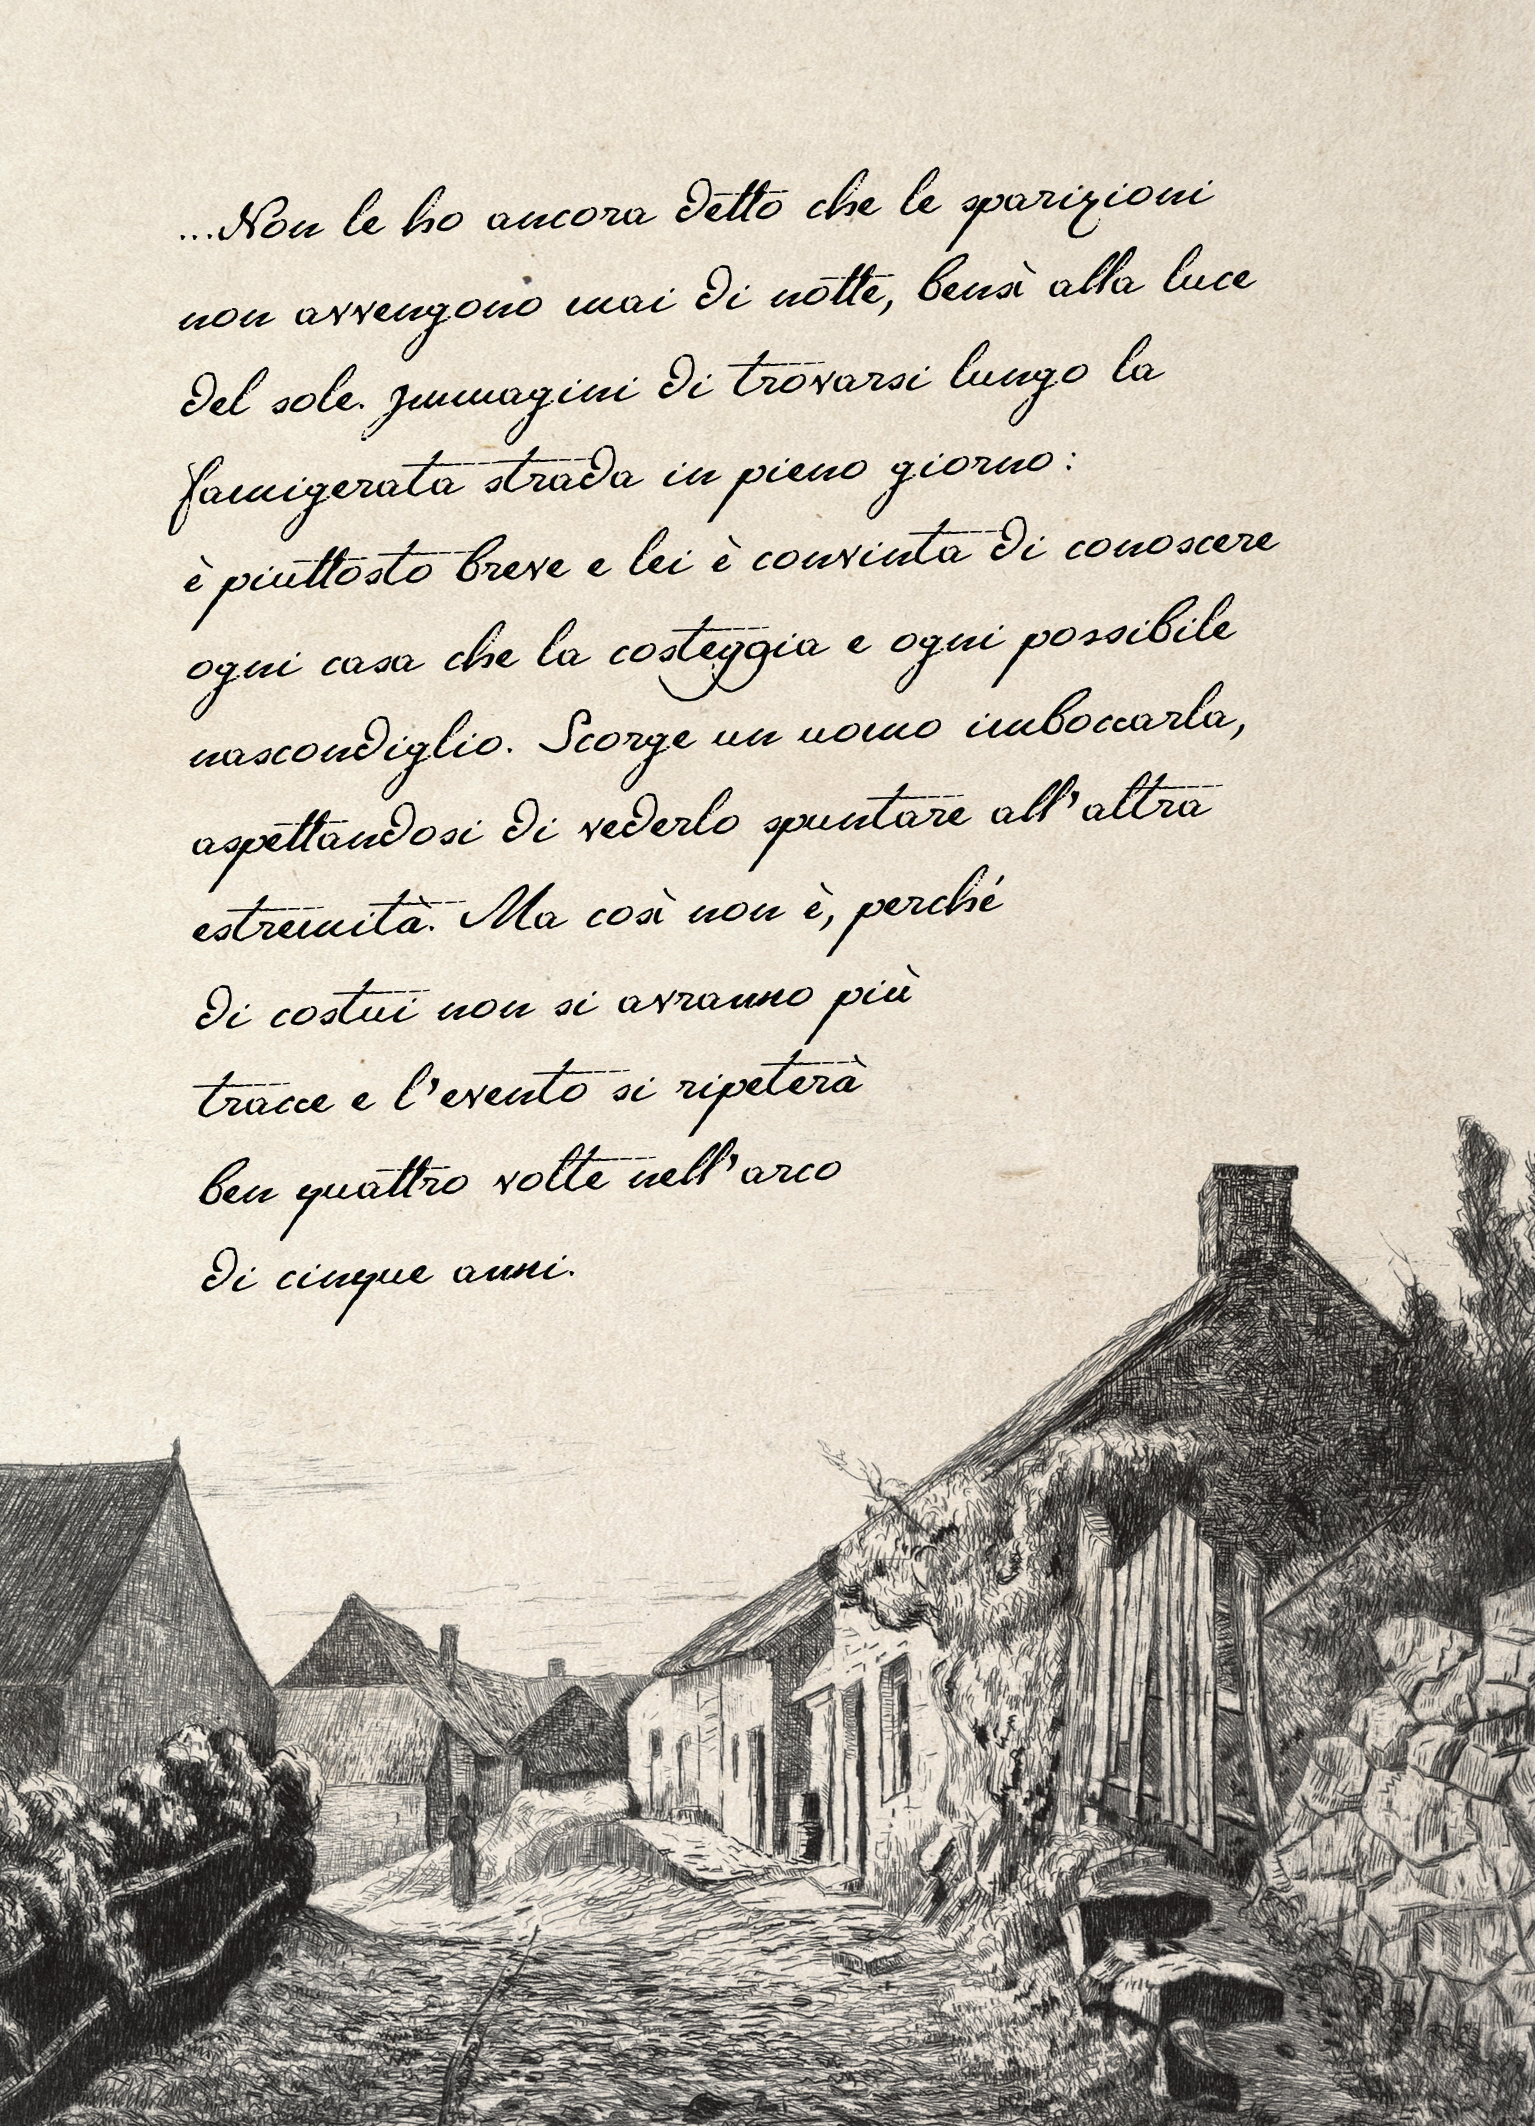 ...Non le ho ancora detto che le sparizioni
non avvengono mai di notte, bensì alla luce
del sole. Immagini di trovarsi lungo la
famigerata strada in pieno giorno:
è piuttosto breve e lei è convinta di conoscere
ogni casa che la costeggia e ogni possibile
nascondiglio. Scorge un uomo imboccarla,
aspettandosi di vederlo spuntare all'altra
estremità. Ma così non è, perché
di costui non si avranno più
tracce e l'evento si ripeterà
ben quattro volte nell'arco
di cinque anni.